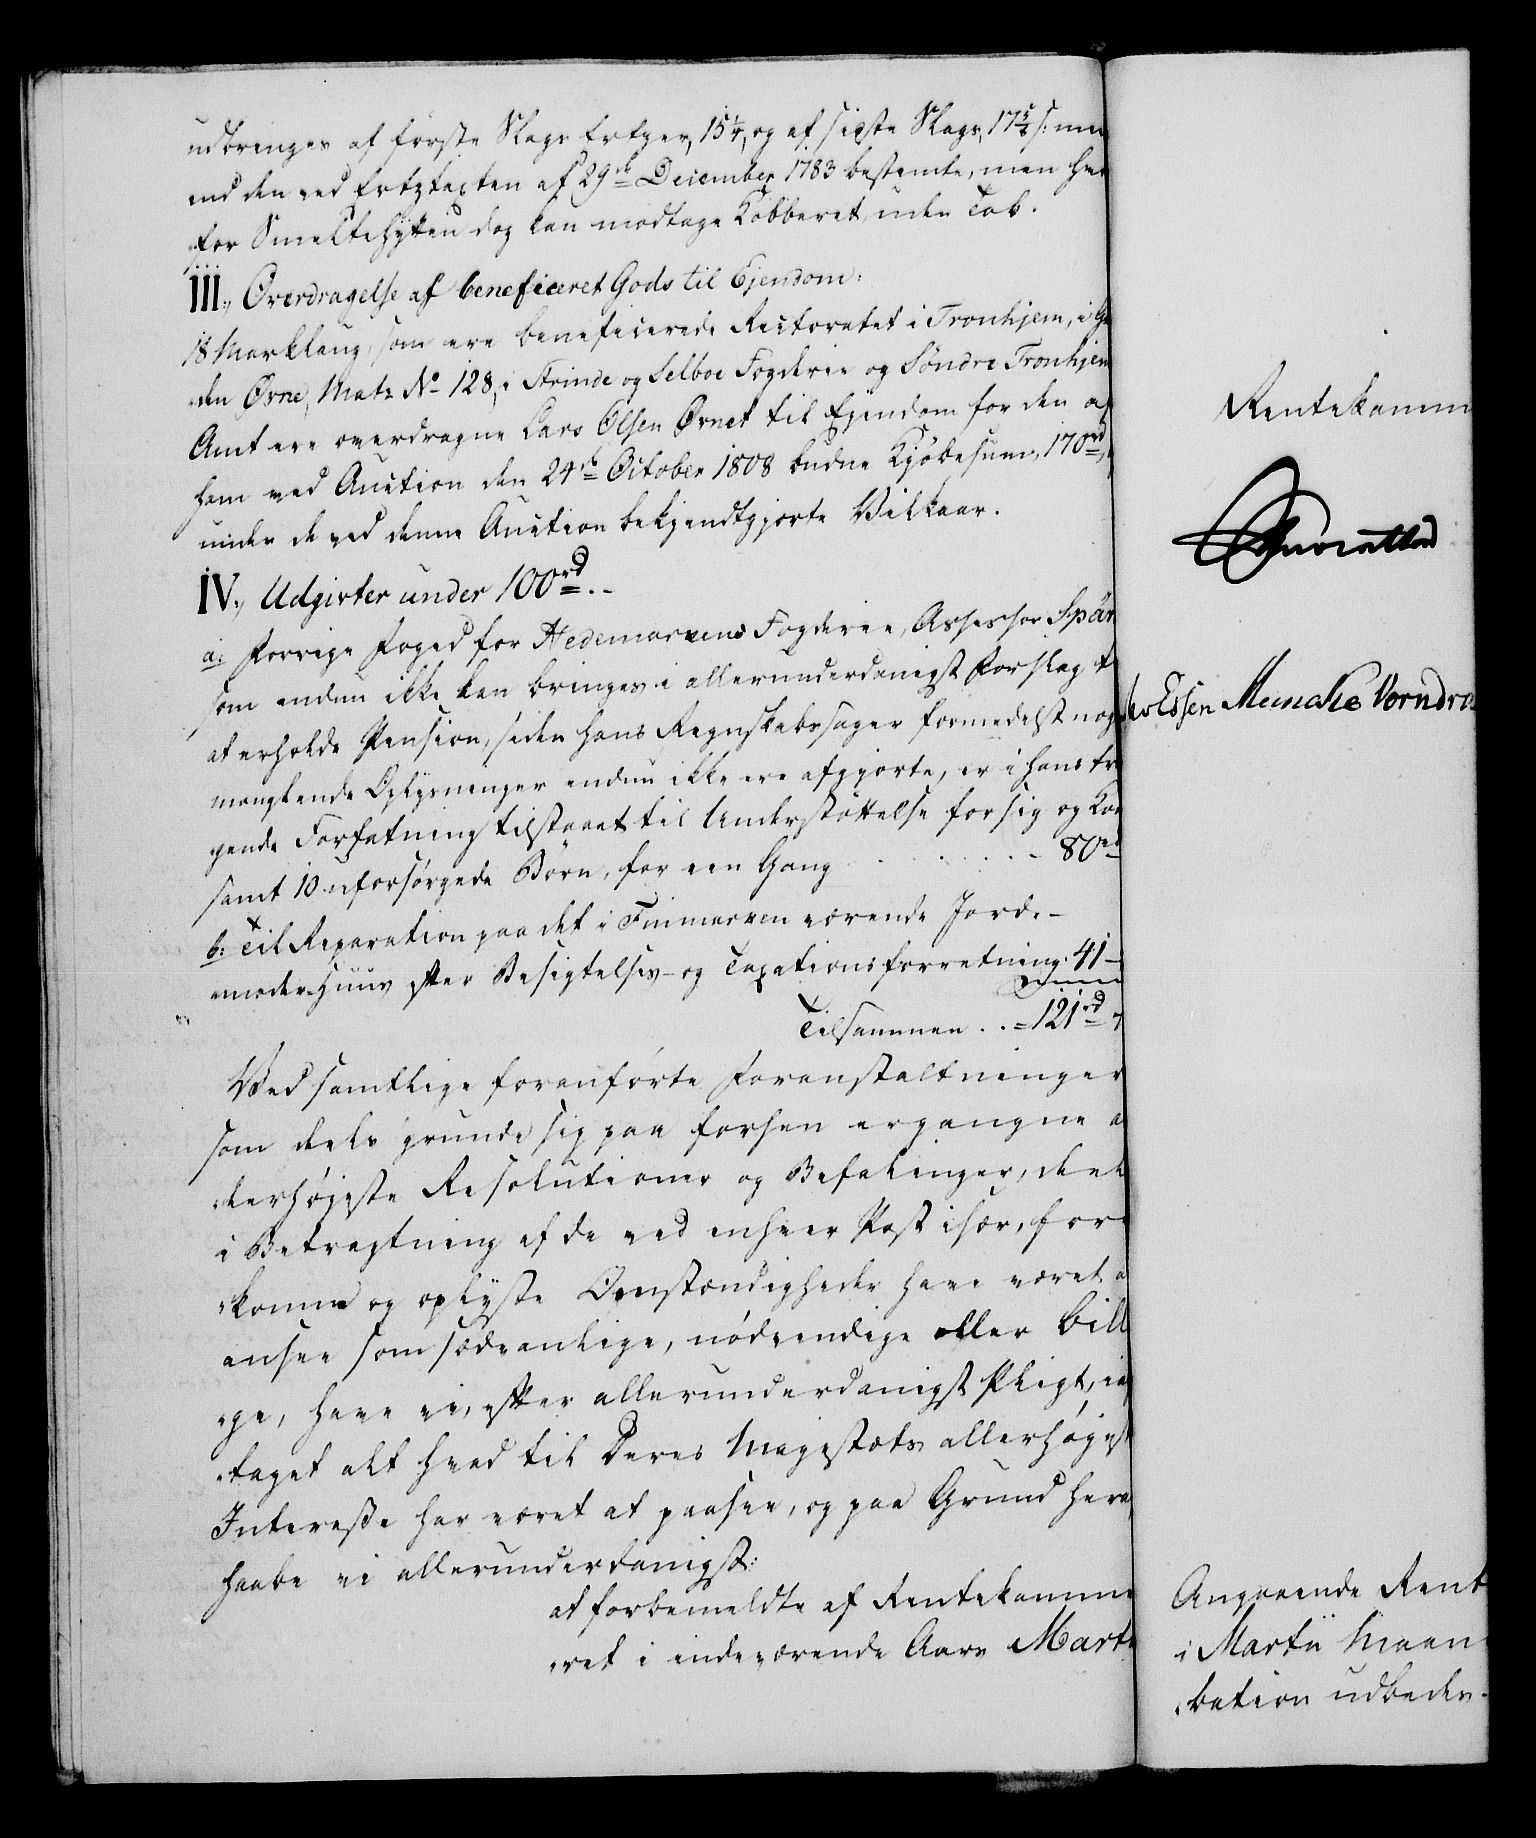 udbringes af første Slags Ertzer, 15¼, og af sidste Slags, 17⅝ s: mer
end den ved Ertztaxten af 29de December 1783 bestemte, men hvor
for Smeltehytten dog kan modtage Kobberet uden Tab.
III., Overdragelse af beneficeret Gods til Ejendom:
18 Marklaug, som ere beneficerede Rectoratet i Tronhjem, i Gaar
den Ørne, Matr. No 128, i Strinde og Selboe Fogderie og Søndre Tronhjem
Amt ere overdragne Lars Olsen Ørnet til Ejendom for den af
ham ved Auction den 24de October 1808 budne Kjøbesum, 170rd,
under de ved denne Auction bekjendtgjorte Vilkaar.
IV., Udgivter under 100rd.-
a: Forrige Foged for Hedemarkens Fogderie, Assessor Spär
som endnu ikke kan bringes i allerunderdanigst Forslag t
at erholde Pension, siden hans Regnskabssager formedelst nog
manglende Oplysninger endnu ikke ere afgjorte, er i hans tr
gende Forfatning tilstaaet til Understøttelse for sig og Kon
samt 10 uforsørgede Børn, for een Gang . . . . . - 80rd
b: Til Reparation paa det i Finmarken værende Jorde-
moder-Huus efter Besigtelses- og Taxationsforretning. 41-
Tilsammen . . = 121rd
Ved samtlige foranførte Foranstaltninger
som deels grunde sig paa forhen ergangne a
llerhøjeste Resolutioner og Befalinger, deel
i Betragtning af de ved enhver Post især, fore
komne og oplyste Omstændigheder have været a
ansee som sædvanlige, nødvendige eller bill
ge, have vi, efter allerunderdanigst Pligt, iag
taget alt hvad til Deres Majestæts allerhøjest
Interesse har været at paasee, og paa Grund hera
haabe vi allerunderdanigst:
at forbemeldte af Rentekamme
ret i indeværende Aars Marti
Rentekamm
Essen Meincke Vorndra
Angaaende Rent
i Martii Maan
bation udbedes.